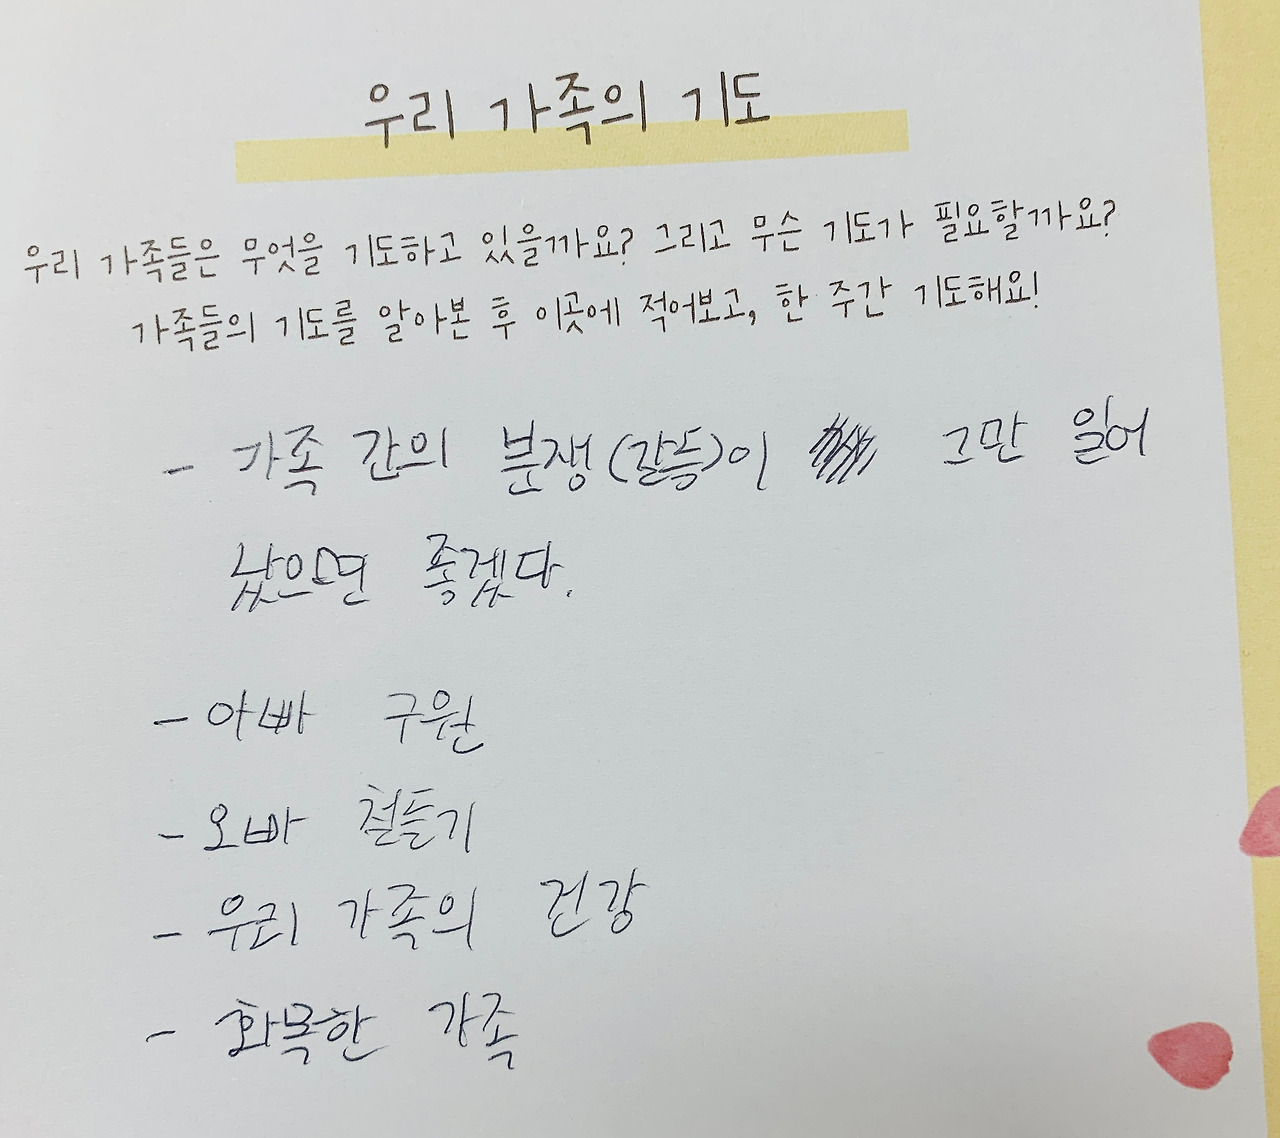 우리 가족의 기도
우리 가족들은 무엇을 기도하고 있을까요? 그리고 무슨 기도가 필요할까요?
가족들의 기도를 알아본 후 이곳에 적어보고, 한 주간 기도해요!
- 가족 간의 분쟁(갈등)이 그만 일어
났으면 좋겠다.
- 아빠 구원
- 오빠 철들기
- 우리 가족의 건강
- 화목한 가족